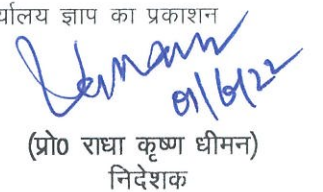 र्यालय ज्ञाप का प्रकाशन
01/6/22
(प्रो0 राधा कृष्ण धीमन)
निदेशक